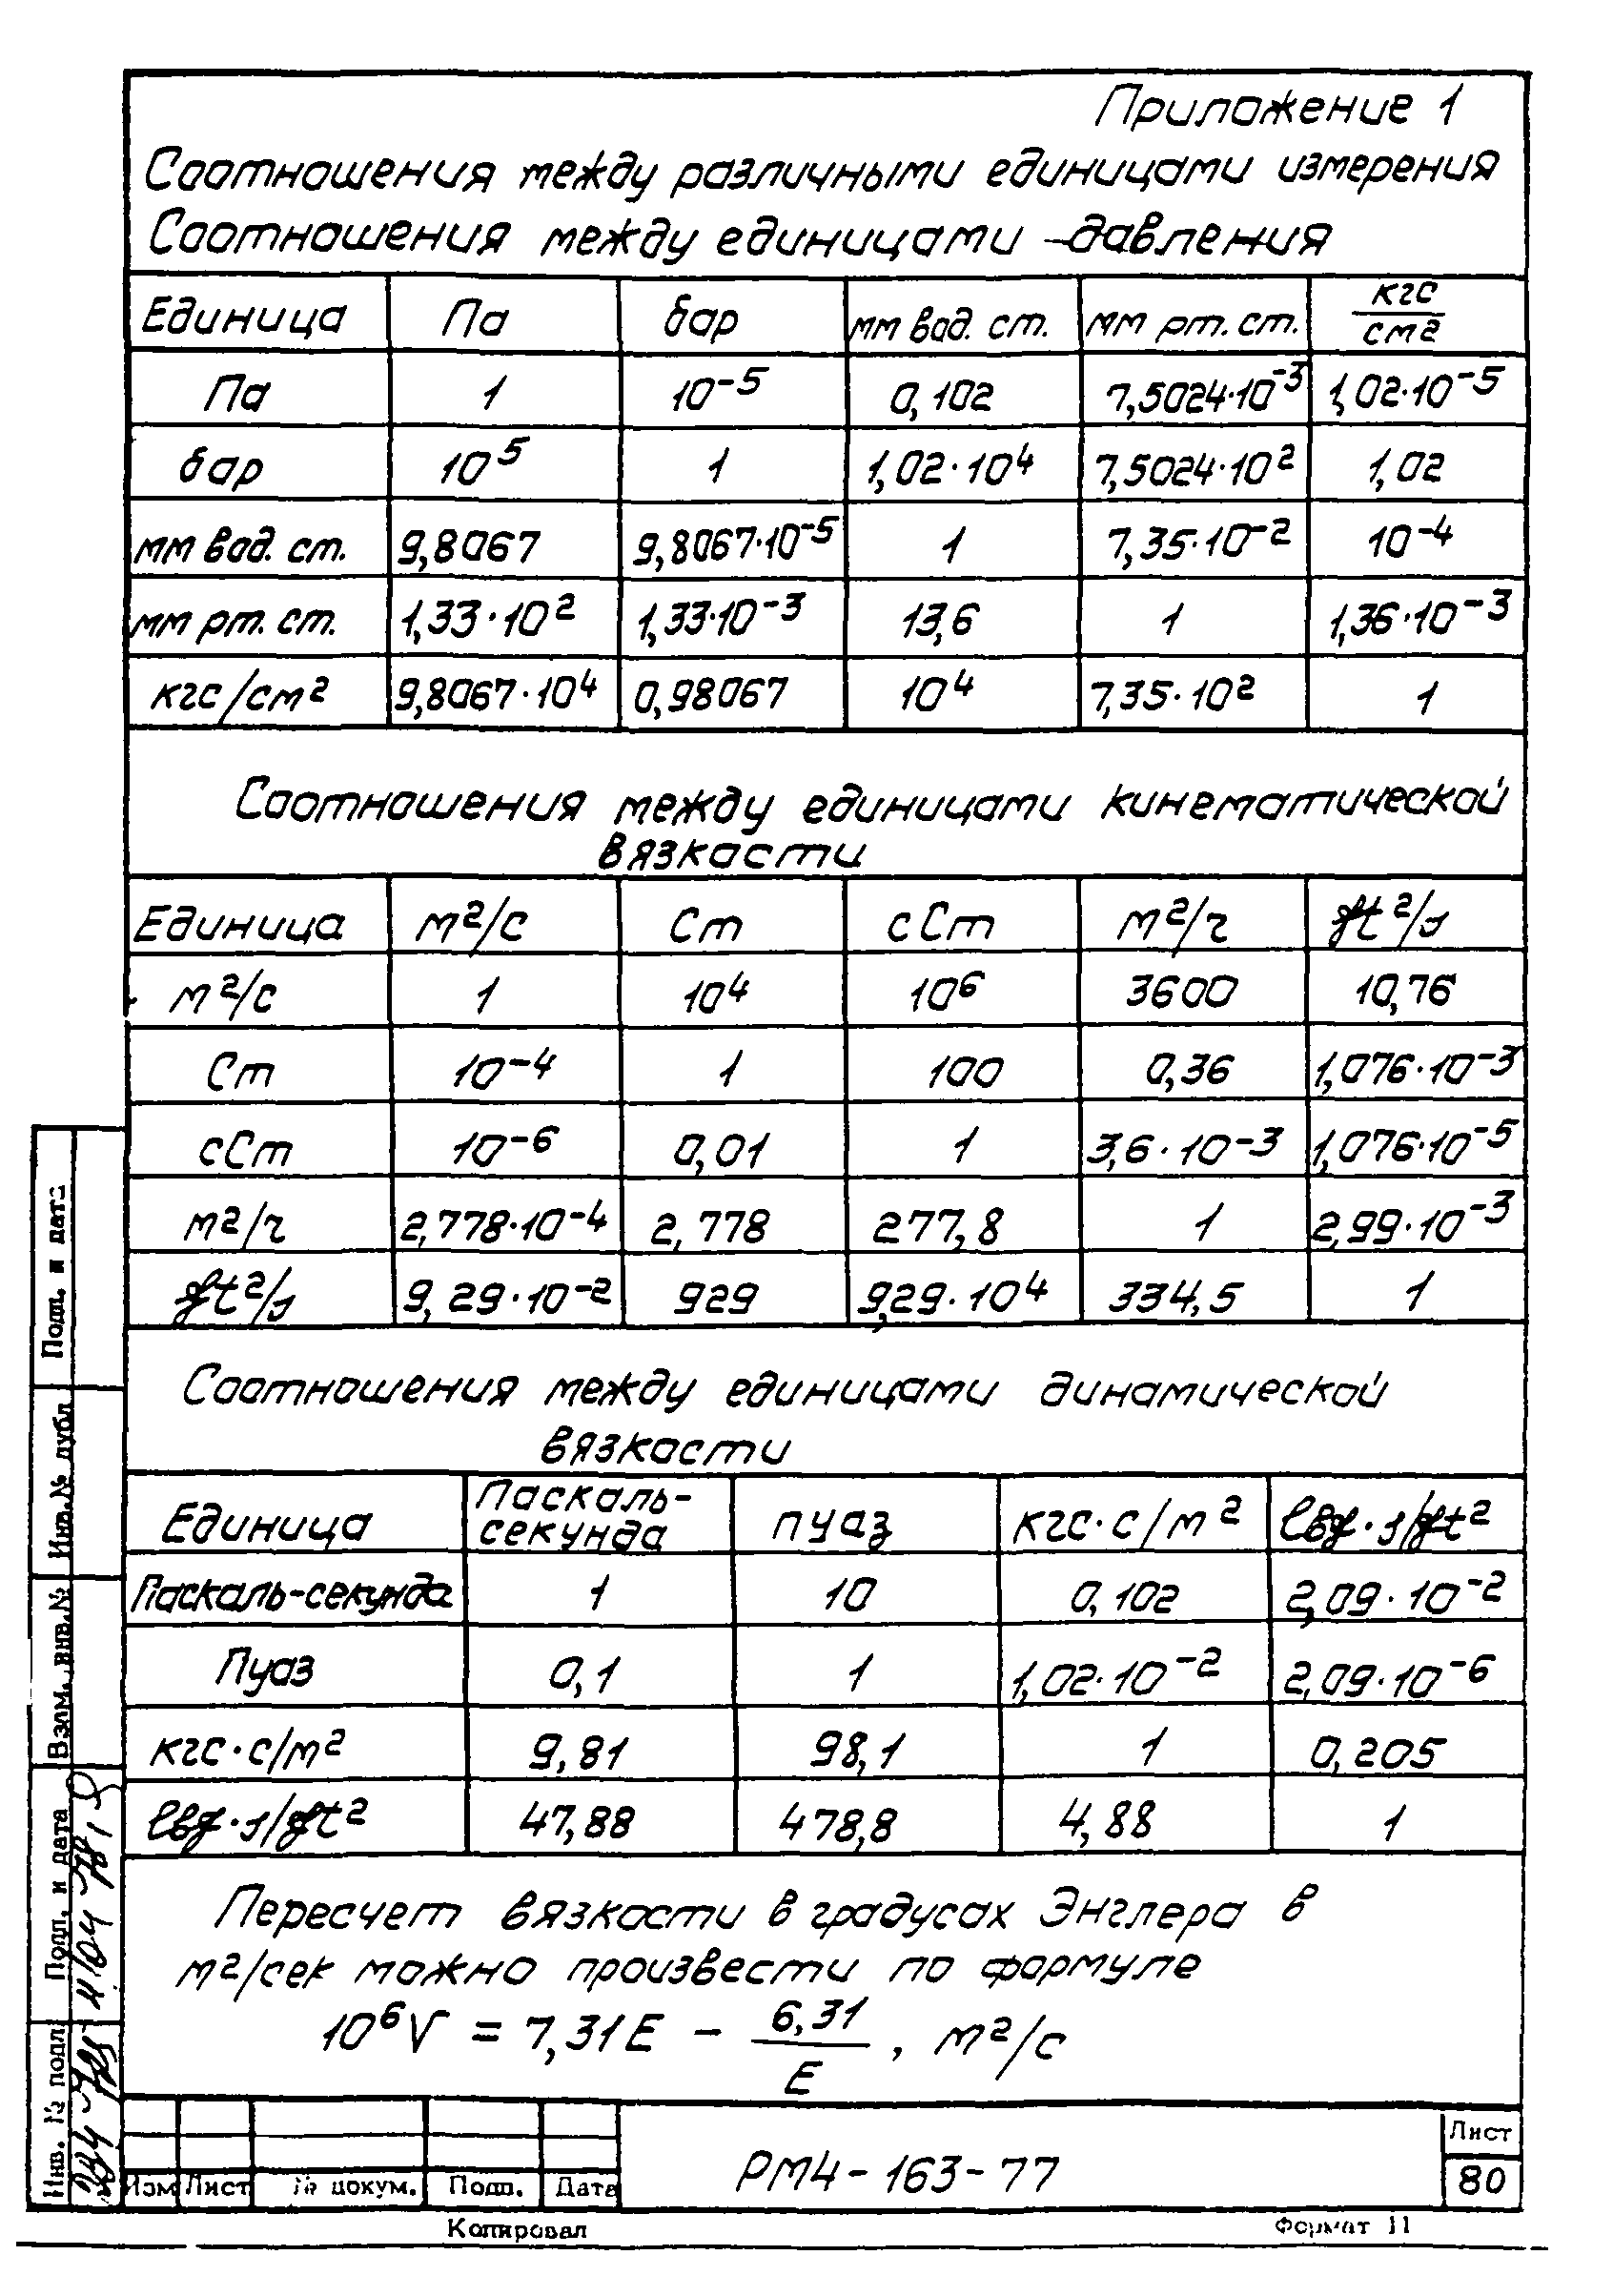 Приложение 1
Соотношения между различными единицами измерения
Соотношения между единицами давления
Единица Па бар мм вод. ст. мм рт. ст. кгс/см²
Па 1 10⁻⁵ 0,102 7,5024·10⁻³ 1,02·10⁻⁵
бар 10⁵ 1 1,02·10⁴ 7,5024·10² 1,02
мм вод. ст. 9,8067 9,8067·10⁻⁵ 1 7,35·10⁻² 10⁻⁴
мм рт. ст. 1,33·10² 1,33·10⁻³ 13,6 1 1,36·10⁻³
кгс/см² 9,8067·10⁴ 0,98067 10⁴ 7,35·10² 1
Соотношения между единицами кинематической
вязкости
Единица м²/с Ст сСт м²/ч ft²/s
м²/с 1 10⁴ 10⁶ 3600 10,76
Ст 10⁻⁴ 1 100 0,36 1,076·10⁻³
сСт 10⁻⁶ 0,01 1 3,6·10⁻³ 1,076·10⁻⁵
м²/ч 2,778·10⁻⁴ 2,778 277,8 1 2,99·10⁻³
ft²/s 9,29·10⁻² 929 9,29·10⁴ 334,5 1
Соотношения между единицами динамической
вязкости
Единица Паскаль-секунда пуаз кгс·с/м² lbf·s/ft²
Паскаль-секунда 1 10 0,102 2,09·10⁻²
Пуаз 0,1 1 1,02·10⁻² 2,09·10⁻⁶
кгс·с/м² 9,81 98,1 1 0,205
lbf·s/ft² 47,88 478,8 4,88 1
Пересчет вязкости в градусах Энглера в
м²/сек можно произвести по формуле
10⁶V = 7,31E − 6,31/E, м²/с
Подп. и дата
Инв.№ дубл
Взам. инв.№
Подп. и дата
Инв. № подл
Изм Лист № докум. Подп. Дата
РМ4-163-77
Лист
80
Копировал Формат 11